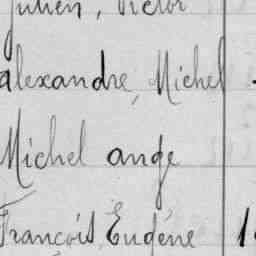 Julien, Victor
alexandre, Michel
Michel ange
François, Eugéne 1